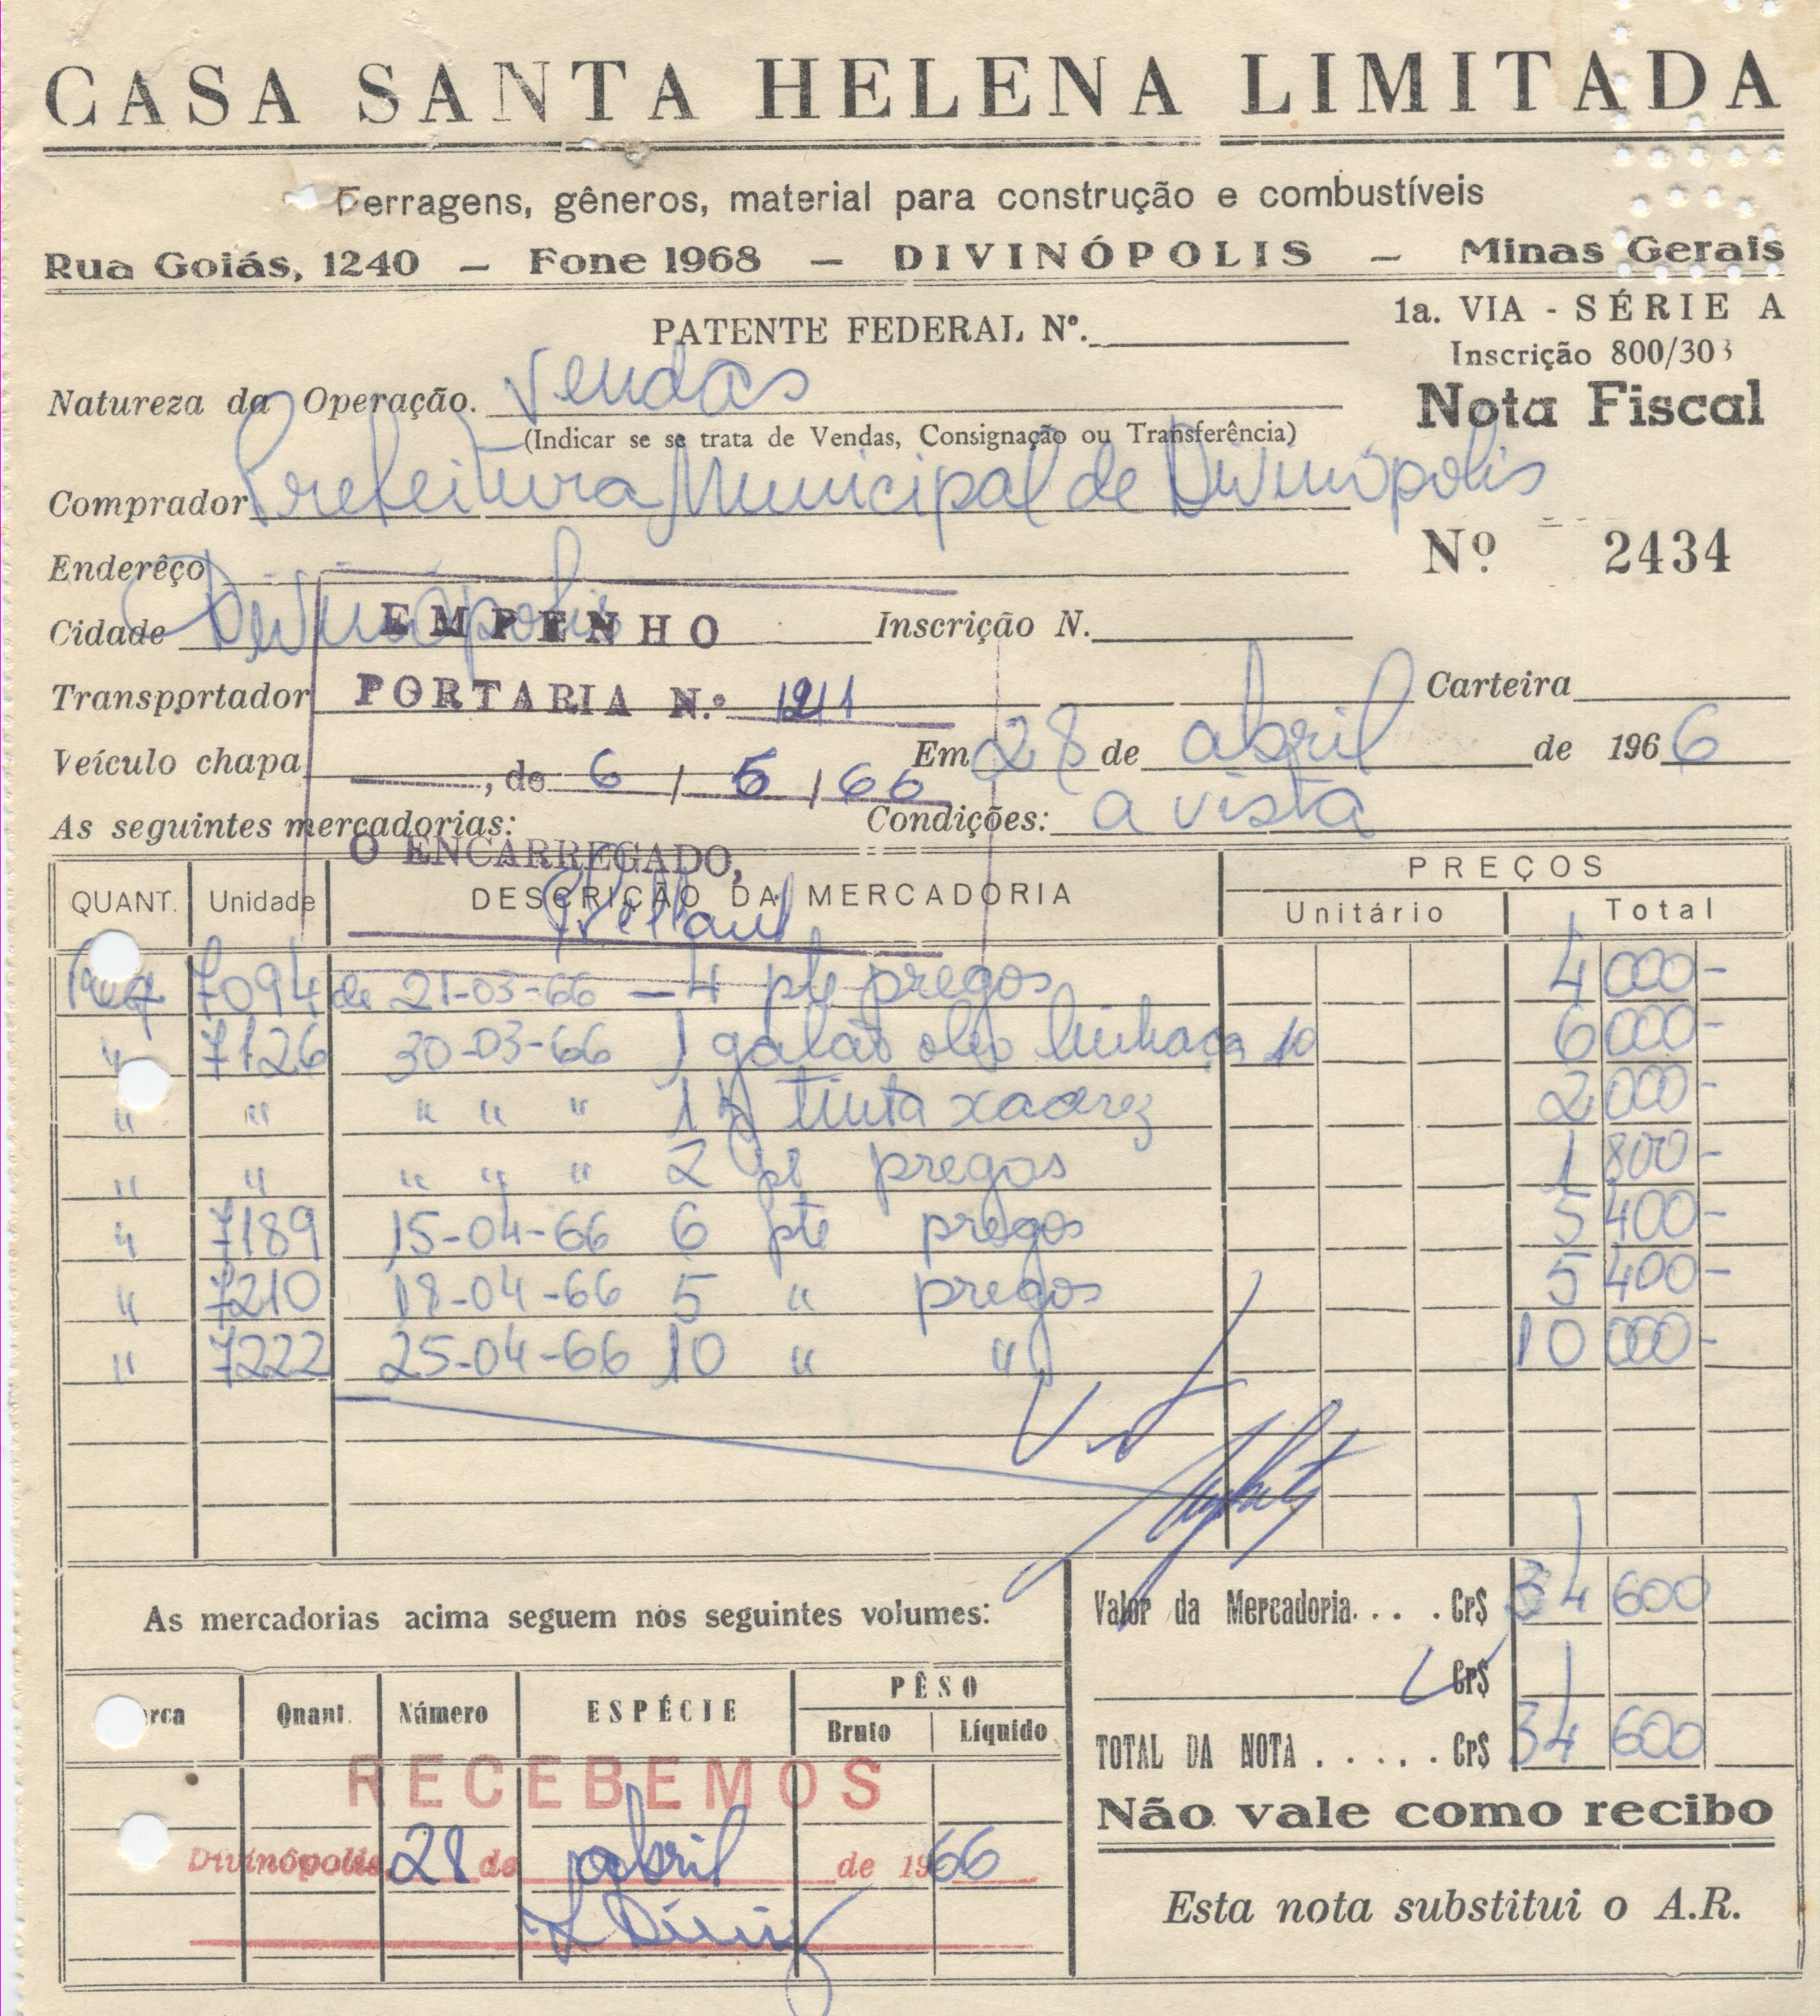 CASA SANTA HELENA LIMITADA
Ferragens, gêneros, material para construção e combustíveis
Rua Goiás, 1240 — Fone 1968 — DIVINÓPOLIS — Minas Gerais
1a. VIA - SÉRIE A
PATENTE FEDERAL Nº.
Inscrição 800/303
Natureza da Operação. Vendas
Nota Fiscal
(Indicar se se trata de Vendas, Consignação ou Transferência)
Comprador Prefeitura Municipal de Divinópolis
Enderêço
Nº 2434
Cidade Divinópolis Inscrição N.
EMPENHO
Transportador Carteira
PORTARIA N.º 1211
Veículo chapa Em 28 de abril de 1966
, de 6 / 5 / 66
As seguintes mercadorias: Condições: a vista
O ENCARREGADO,
QUANT. Unidade DESCRIÇÃO DA MERCADORIA PREÇOS
Unitário Total
Req 7094 de 21-03-66 — 4 pte pregos 4 000-
" 7126 30-03-66 1 galão oleo linhaça 10 6 000-
" " " " " 1 tinta xadrez 2 000-
" " " " " 2 pregos 1 800-
" 7189 15-04-66 6 pte pregos 5 400-
" 7210 18-04-66 5 " pregos 5 400-
" 7222 25-04-66 10 " " 10 000-
As mercadorias acima seguem nos seguintes volumes:
Valor da Mercadoria. . . . Cr$ 34 600
Cr$
Quant. Número ESPÉCIE PÊSO
Bruto Líquido
TOTAL DA NOTA . . . . . Cr$ 34 600
RECEBEMOS
Não vale como recibo
Divinópolis 28 de abril de 1966
Esta nota substitui o A.R.